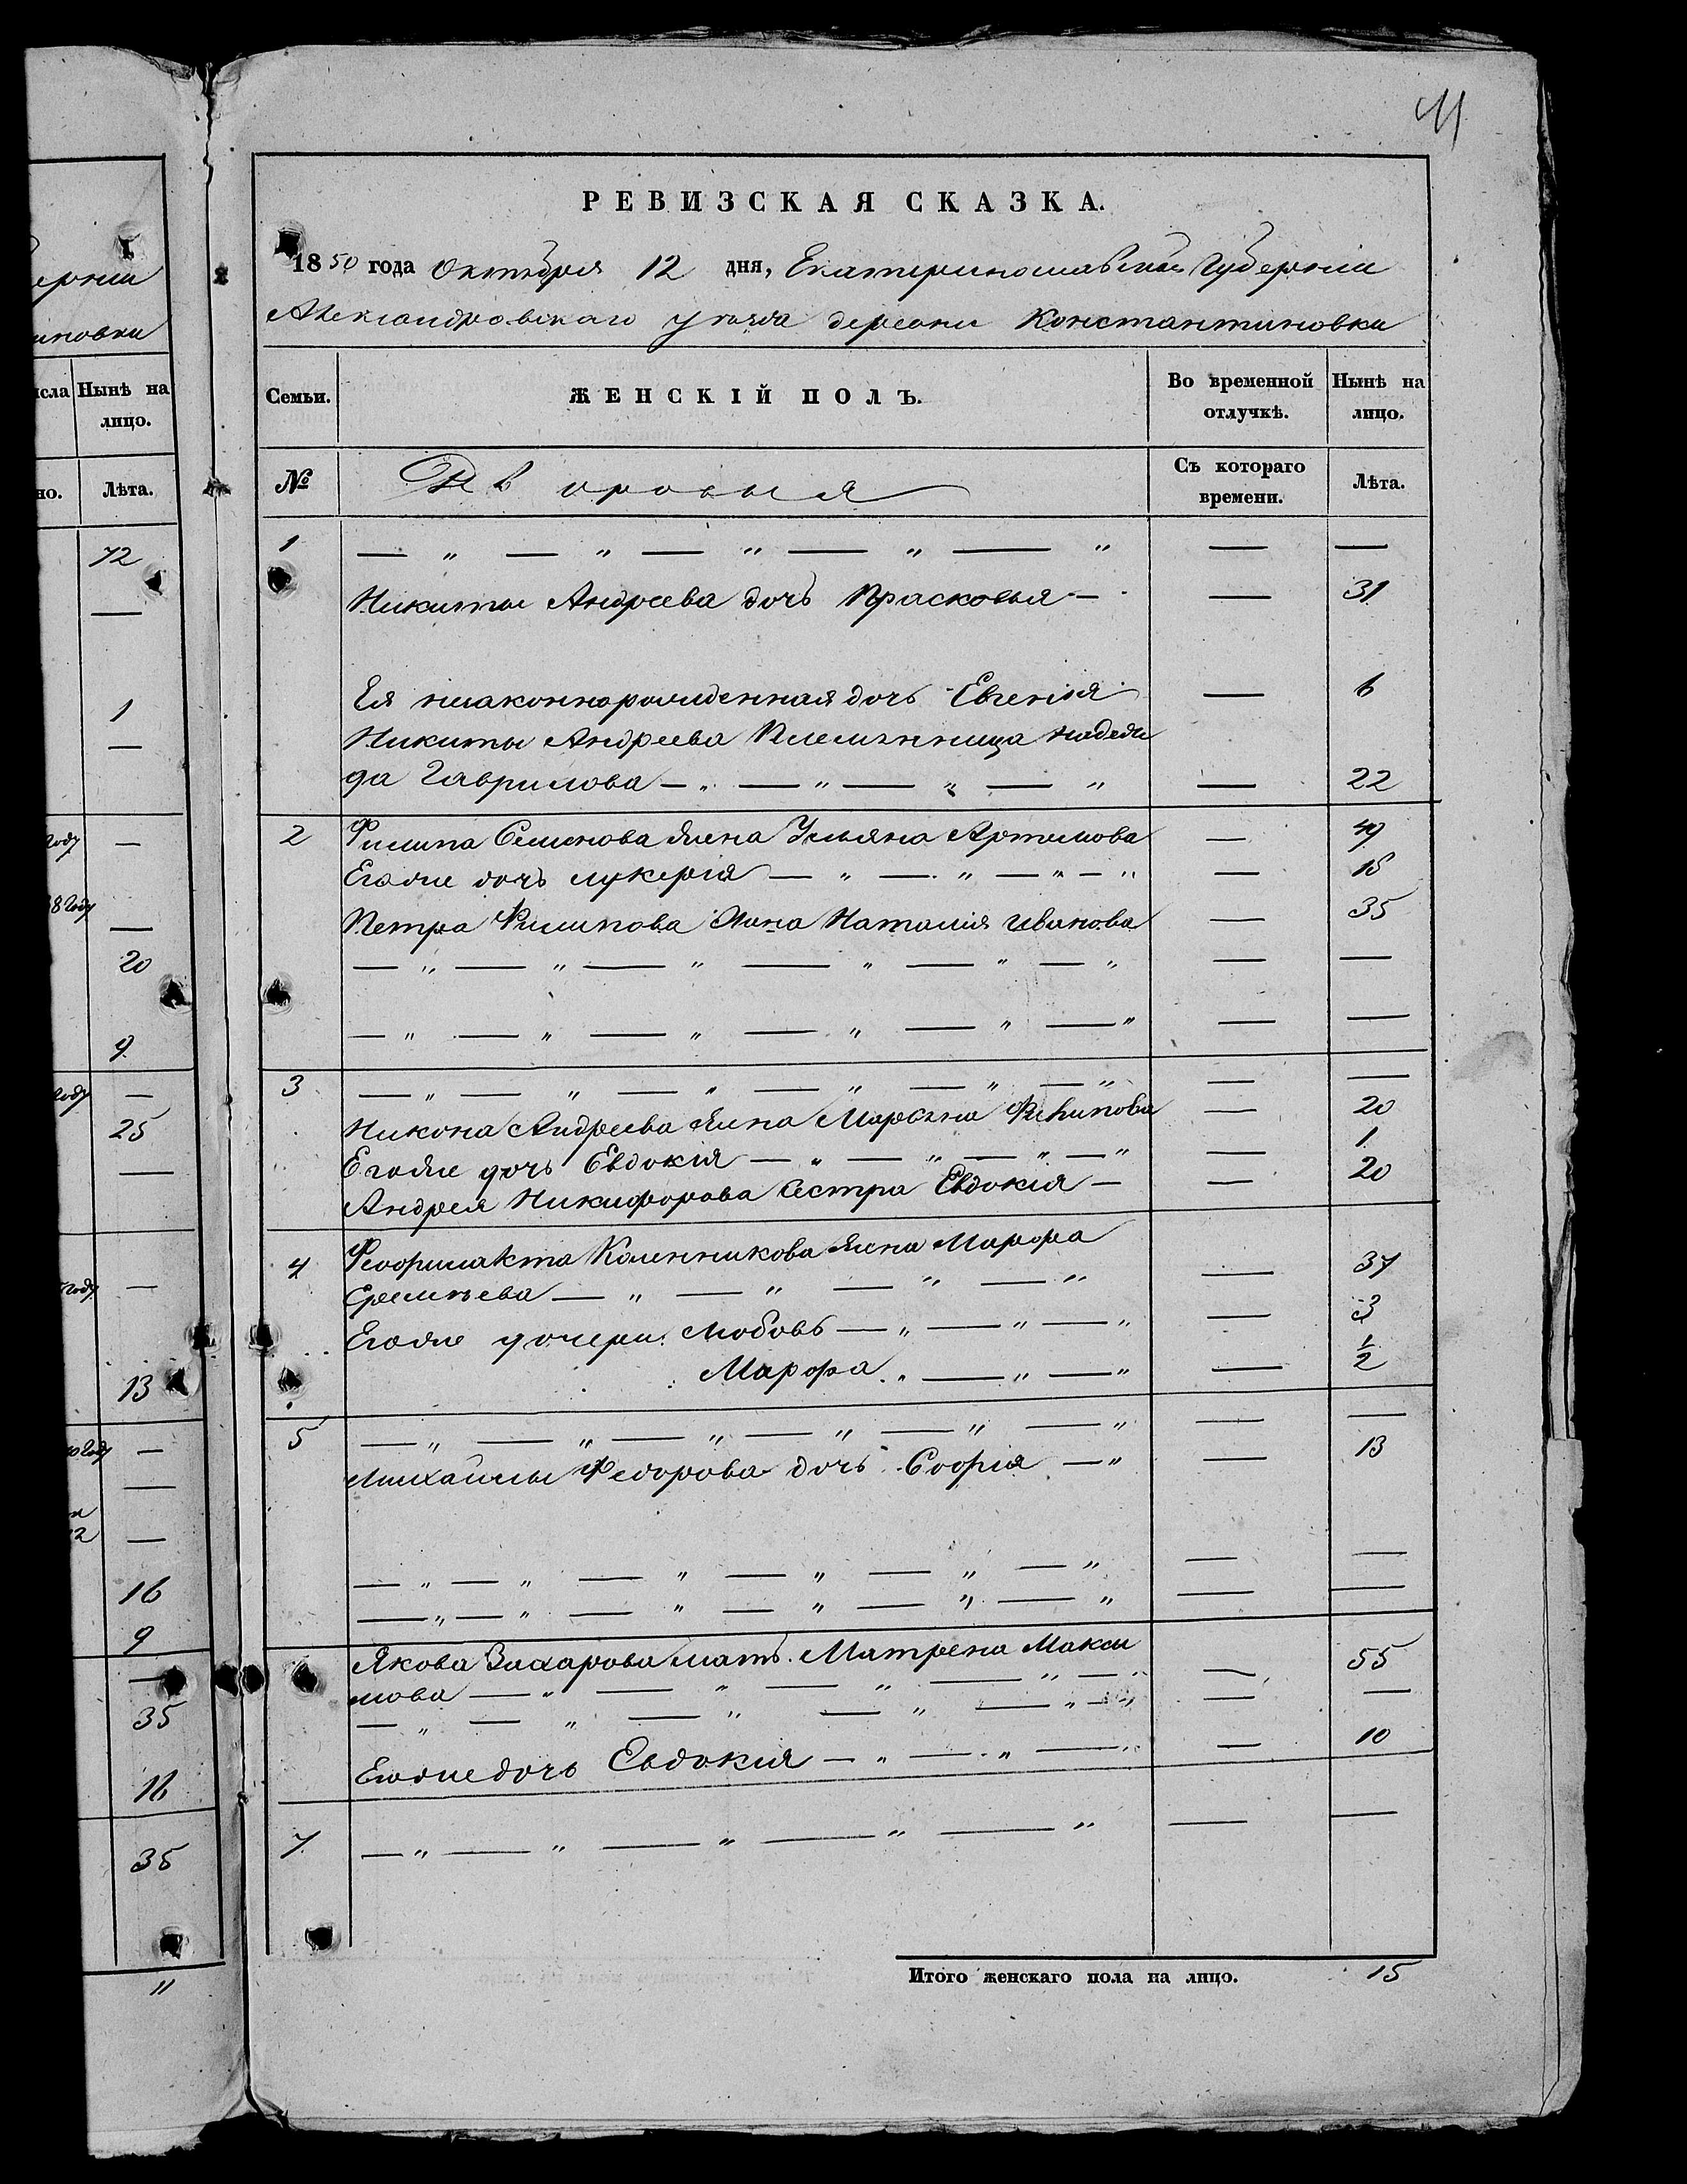 41
РЕВИЗСКАЯ СКАЗКА.
1850 года Октября 12 дня, Екатеринославской Губернии
Александровскаго уезда деревни Константиновки
Семьи. ЖЕНСКІЙ ПОЛЪ. Во временной отлучкѣ. Нынѣ на лицо.
№ Дворовыя Съ котораго времени. Лѣта.
1 — „ — „ — „ — „ — „ — —
Никиты Андреева дочь Прасковья — — 31
Ея незаконнорожденная дочь Евгенія — 6
Никиты Андреева Племянница Надеж
да Гаврилова — „ — „ — „ — „ — 22
2 Филипа Семенова жена Ульяна Артемова — 49
Егоже дочь Лукерія — „ — „ — „ — „ — 15
Петра Филипова жена Наталія Иванова — 35
— „ — „ — „ — „ — „ — „ — —
— „ — „ — „ — „ — „ — „ — —
3 — „ — „ — „ — „ — „ — „ — —
Никона Андреева жена Марфа Филипова — 20
Егоже дочь Евдокія — „ — „ — „ — „ — 1
Андрея Никифорова Сестра Евдокія — — 20
4 Феофилакта Калинникова жена Марфа
Еремѣева — „ — „ — „ — „ — 37
Егоже дочери: Любовь — „ — „ — „ — 3
Марфа „ — „ — „ — 1/2
5 — „ — „ — „ — „ — „ — „ — —
Михайлы Федорова дочь Софія — „ — 13
— „ — „ — „ — „ — „ — „ — —
— „ — „ — „ — „ — „ — „ — —
Якова Захарова мать Матрена Макси
мова — „ — „ — „ — „ — — 55
— „ — „ — „ — „ — „ — „ — —
Егоже дочь Евдокія — „ — „ — „ — 10
7 — „ — „ — „ — „ — „ — —
Итого женскаго пола на лицо. 15
ерніи
иновки
исла Нынѣ на лицо.
но. Лѣта.
72
—
1
—
году —
8 году —
20
9
году —
25
—
году —
13
году —
—
2 —
16
9
—
35
16
35
"